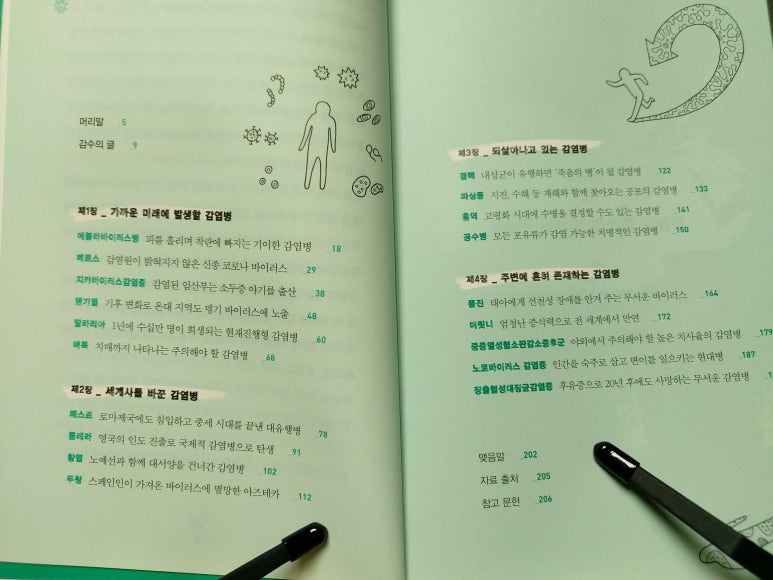 머리말 _5
감수의 글 _9
제1장 _ 가까운 미래에 발생할 감염병
에볼라바이러스병 피를 흘리며 착란에 빠지는 기이한 감염병 _18
메르스 감염원이 밝혀지지 않은 신종 코로나 바이러스 _29
지카바이러스감염증 감염된 임산부는 소두증 아기를 출산 _38
뎅기열 기후 변화로 온대 지역도 뎅기 바이러스에 노출 _48
말라리아 1년에 수십만 명이 희생되는 현재진행형 감염병 _60
매독 치매까지 나타나는 주의해야 할 감염병 _68
제2장 _ 세계사를 바꾼 감염병
페스트 로마제국에도 침입하고 중세 시대를 끝낸 대유행병 _78
콜레라 영국의 인도 진출로 국제적 감염병으로 탄생 _91
황열 노예선과 함께 대서양을 건너간 감염병 _102
두창 스페인인이 가져온 바이러스에 멸망한 아즈테카 _112
제3장 _ 되살아나고 있는 감염병
결핵 내성균이 유행하면 '죽음의 병'이 될 감염병 _122
파상풍 지진, 수해 등 재해와 함께 찾아오는 공포의 감염병 _133
홍역 고령화 시대에 수명을 결정할 수도 있는 감염병 _141
공수병 모든 포유류가 감염 가능한 치명적인 감염병 _150
제4장 _ 주변에 흔히 존재하는 감염병
풍진 태아에게 선천성 장애를 안겨 주는 무서운 바이러스 _164
머릿니 엄청난 증식력으로 전 세계에서 만연 _172
중증열성혈소판감소증후군 야외에서 주의해야 할 높은 치사율의 감염병 _179
노로바이러스 감염증 인간을 숙주로 삼고 변이를 일으키는 현대병 _187
장출혈성대장균감염증 후유증으로 20년 후에도 사망하는 무서운 감염병
맺음말 _202
자료 출처 _205
참고 문헌 _206